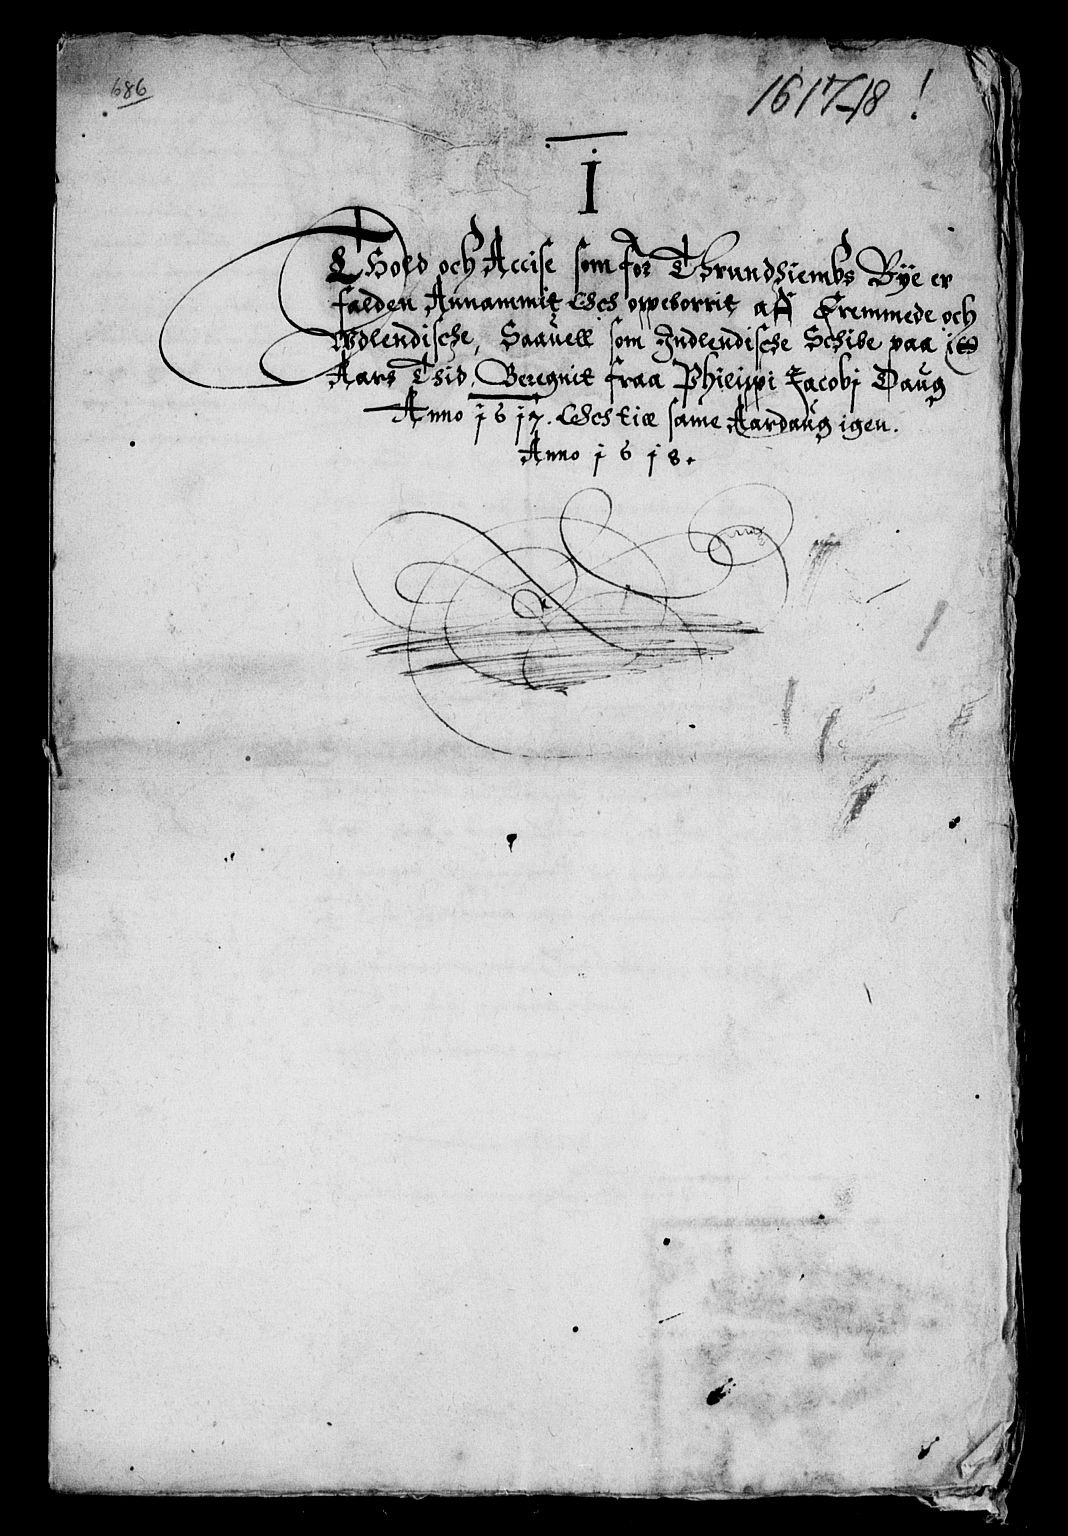 686
1617-18!
I
Thold och Accise som for Thrundhiembs Bye er
falden Annammit Och oppeborrit aff Fremmede och
Wdlendische, Saauell som Indlendische Schibe paa it
Aars Thid, Beregnit fraa Philippi Jacobi Daug
Anno 1617. Och till same Aardaug igen.
Anno 1618.